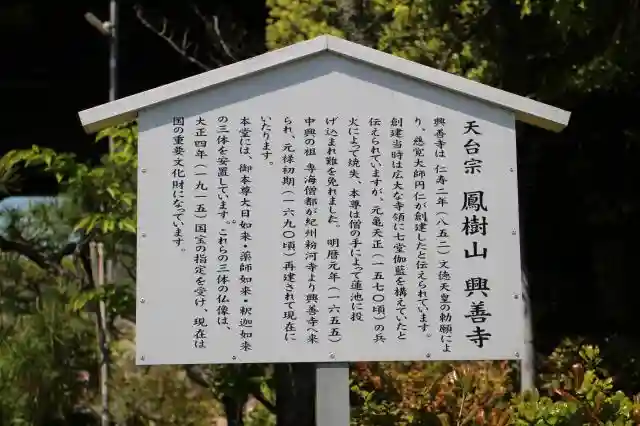 天台宗 鳳樹山 興善寺
興善寺は、仁寿二年（八五二）文徳天皇の勅願によ
り、慈覚大師円仁が創建したと伝えられています。
創建当時は広大な寺領に七堂伽藍を構えていたと
伝えられていますが、元亀天正（一五七〇頃）の兵
火によって焼失、本尊は僧の手によって蓮池に投
げ込まれ難を免れました。明暦元年（一六五五）
中興の祖 専海僧都が紀州粉河寺より興善寺へ来
られ、元禄初期（一六九〇頃）再建されて現在に
いたります。
本堂には、御本尊大日如来・薬師如来・釈迦如来
の三体を安置しています。これらの三体の仏像は、
大正四年（一九一五）国宝の指定を受け、現在は
国の重要文化財になっています。